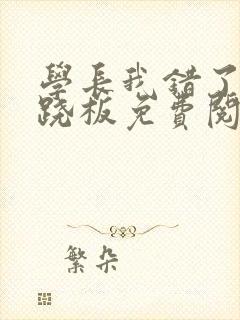 學長我錯了
跷板免費閱
繁朵